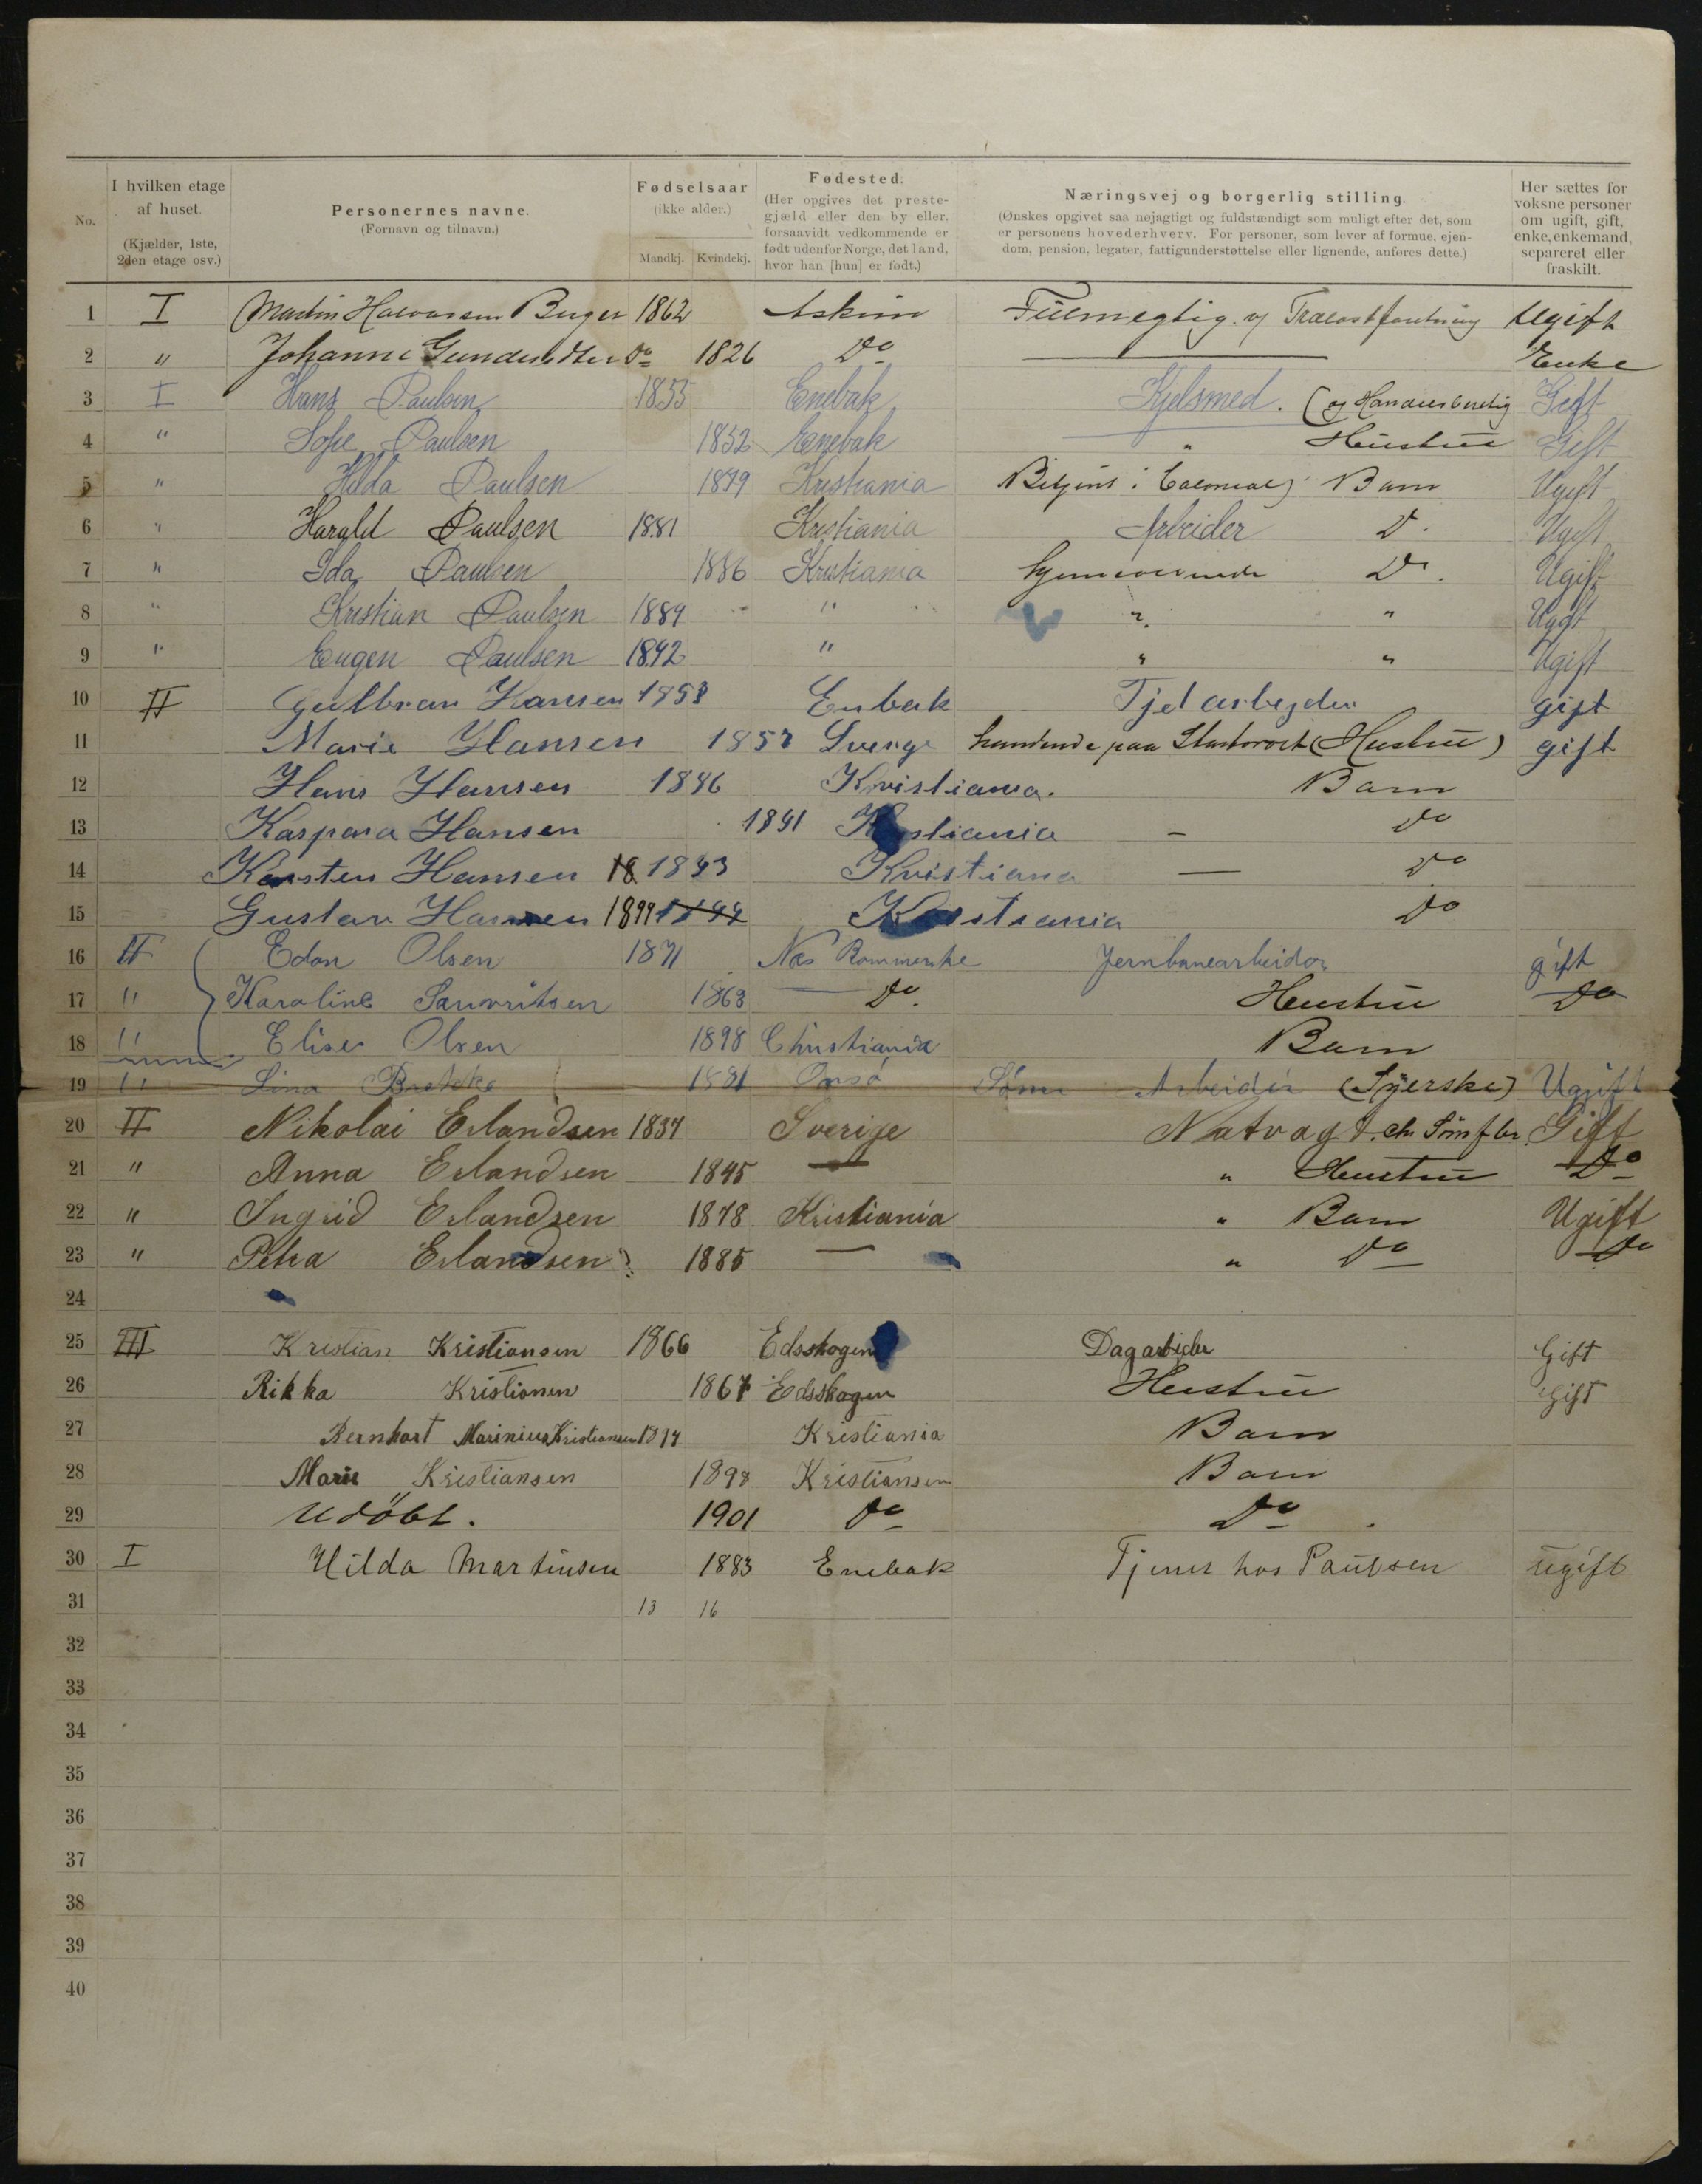 No.
I hvilken etage af huset. (Kjælder, 1ste, 2den etage osv.)
Personernes navne. (Fornavn og tilnavn.)
Fødselsaar (ikke alder.) Mandkj. Kvindekj.
Fødested. (Her opgives det prestegjæld eller den by eller, forsaavidt vedkommende er født udenfor Norge, det land, hvor han [hun] er født.)
Næringsvej og borgerlig stilling. (Ønskes opgivet saa nøjagtigt og fuldstændigt som muligt efter det, som er personens hovederhverv. For personer, som lever af formue, ejendom, pension, legater, fattigunderstøttelse eller lignende, anføres dette.)
Her sættes for voksne personer om ugift, gift, enke, enkemand, separeret eller fraskilt.
1 I Martin Halvorsen 1862 Askim Ugift
2 " Johanne Do 1826 Do Enke
3 I Hans Paulsen 1855 Enebak Gift
4 " Sofie Paulsen 1852 Enebak " Hustru Gift
5 " Hilda Paulsen 1879 Kristiania Barn Ugift
6 " Harald Paulsen 1881 Kristiania Arbeider D. Ugift
7 " Ida Paulsen 1886 Kristiania Hjemmeværende Do. Ugift
8 " Kristian Paulsen 1889 " " " Ugift
9 " Eugen Paulsen 1892 " " " Ugift
10 II Gulbran Hansen Enbak gift
11 Marie Hansen 1857 Sverge (Hustru) gift
12 Hans Hansen 1886 Kristiania. Barn
13 Kaspara Hansen 1891 Kristiania – Do
14 Karsten Hansen 18 1893 Kristiana — Do
15 Gustav Hansen 1899 1899 Kristiania Do
16 II Edon Olsen 1871 Nes Rommerike Jernbanearbeider gift
17 " Karoline 1863 Do. Hustru Do
18 " Elise Olsen 1898 Christiania Barn
19 " Lina 1881 Onsö Arbeider (Syerske) Ugift
20 II Nikolai Erlandsen 1837 Sverige Gift
21 " Anna Erlandsen 1845 — " Hustru Do
22 " Ingrid Erlandsen 1878 Kristiania " Barn Ugift
23 " Petra Erlandsen 1885 — " Do Do
24
25 III Kristian Kristiansen 1866 Edsskogen Dagarbeider Gift
26 Rikka Kristiansen 1867 Edsskogen Hustru Gift
27 Bernhart Marinius Kristiansen Kristiania Barn
28 Marie Kristiansen 1898 Kristiansen Barn
29 Udöbt. 1901 Do Do
30 I Hilda Martinsen 1883 Enebak Tjener hos Paulsen ugift
31 13 16
32
33
34
35
36
37
38
39
40